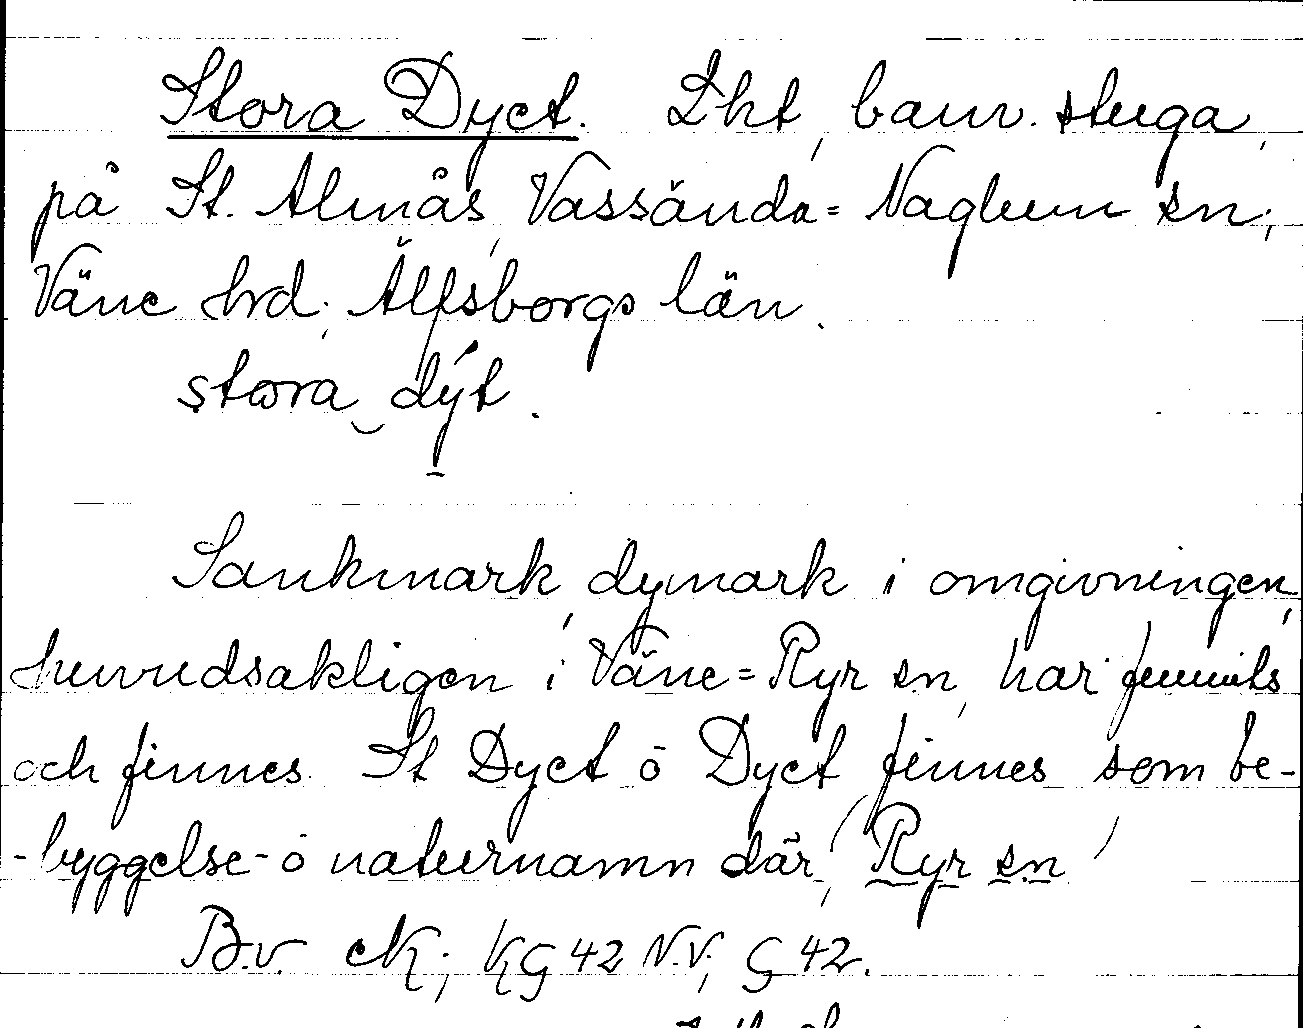 Stora Dyct. Lht, banv. stuga,
på St. Almås, Vassända=Naglum sn;
Väne hrd; Älfsborgs län.
stora dýt.
Sankmark, dymark i omgivningen,
huvudsakligen i Väne=Ryr sn, har funnits
och finnes. St Dyct o Dyct finnes som be-
-byggelse- o naturnamn där, (Ryr sn)
B.v. eK; KG 42 N.V; G 42.